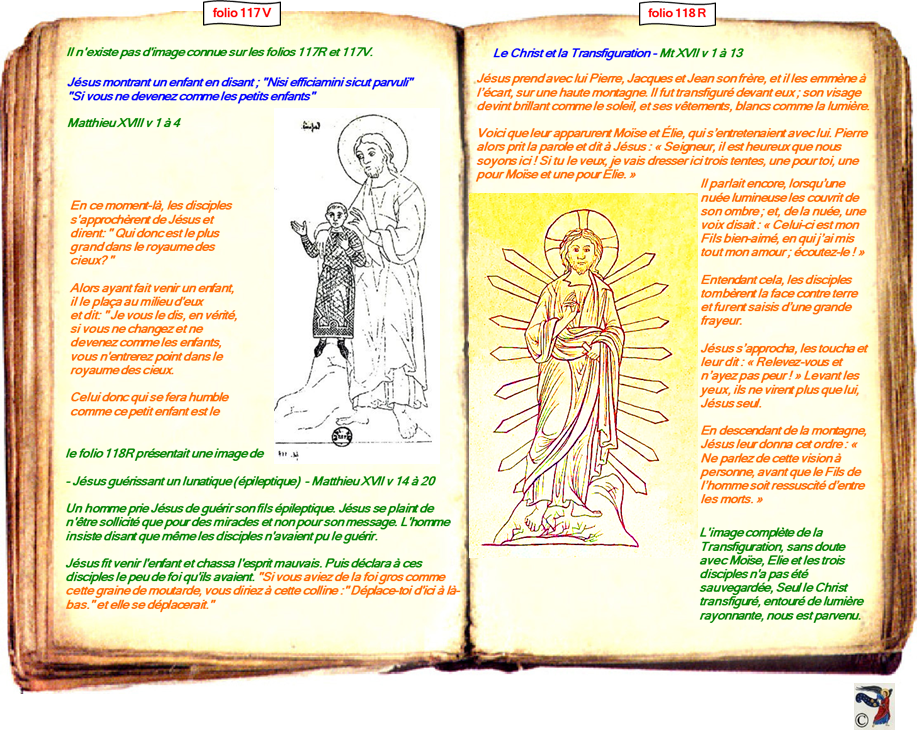 folio 117 V
Il n'existe pas d'image connue sur les folios 117R et 117V.
Jésus montrant un enfant en disant ; "Nisi efficiamini sicut parvuli"
"Si vous ne devenez comme les petits enfants"
Matthieu XVIII v 1 à 4
En ce moment-là, les disciples
s'approchèrent de Jésus et
dirent: " Qui donc est le plus
grand dans le royaume des
cieux? "
Alors ayant fait venir un enfant,
il le plaça au milieu d'eux
et dit: " Je vous le dis, en vérité,
si vous ne changez et ne
devenez comme les enfants,
vous n'entrerez point dans le
royaume des cieux.
Celui donc qui se fera humble
comme ce petit enfant est le
le folio 118R présentait une image de
- Jésus guérissant un lunatique (épileptique) - Matthieu XVII v 14 à 20
Un homme prie Jésus de guérir son fils épileptique. Jésus se plaint de
n'être sollicité que pour des miracles et non pour son message. L'homme
insiste disant que même les disciples n'avaient pu le guérir.
Jésus fit venir l'enfant et chassa l'esprit mauvais. Puis déclara à ces
disciples le peu de foi qu'ils avaient. "Si vous aviez de la foi gros comme
cette graine de moutarde, vous diriez à cette colline :" Déplace-toi d'ici à là-
bas." et elle se déplacerait."
folio 118 R
Le Christ et la Transfiguration - Mt XVII v 1 à 13
Jésus prend avec lui Pierre, Jacques et Jean son frère, et il les emmène à
l'écart, sur une haute montagne. Il fut transfiguré devant eux ; son visage
devint brillant comme le soleil, et ses vêtements, blancs comme la lumière.
Voici que leur apparurent Moïse et Élie, qui s'entretenaient avec lui. Pierre
alors prit la parole et dit à Jésus : « Seigneur, il est heureux que nous
soyons ici ! Si tu le veux, je vais dresser ici trois tentes, une pour toi, une
pour Moïse et une pour Élie. »
Il parlait encore, lorsqu'une
nuée lumineuse les couvrit de
son ombre ; et, de la nuée, une
voix disait : « Celui-ci est mon
Fils bien-aimé, en qui j'ai mis
tout mon amour ; écoutez-le ! »
Entendant cela, les disciples
tombèrent la face contre terre
et furent saisis d'une grande
frayeur.
Jésus s'approcha, les toucha et
leur dit : « Relevez-vous et
n'ayez pas peur ! » Levant les
yeux, ils ne virent plus que lui,
Jésus seul.
En descendant de la montagne,
Jésus leur donna cet ordre : «
Ne parlez de cette vision à
personne, avant que le Fils de
l'homme soit ressuscité d'entre
les morts. »
L'image complète de la
Transfiguration, sans doute
avec Moïse, Elie et les trois
disciples n'a pas été
sauvegardée, Seul le Christ
transfiguré, entouré de lumière
rayonnante, nous est parvenu.
©